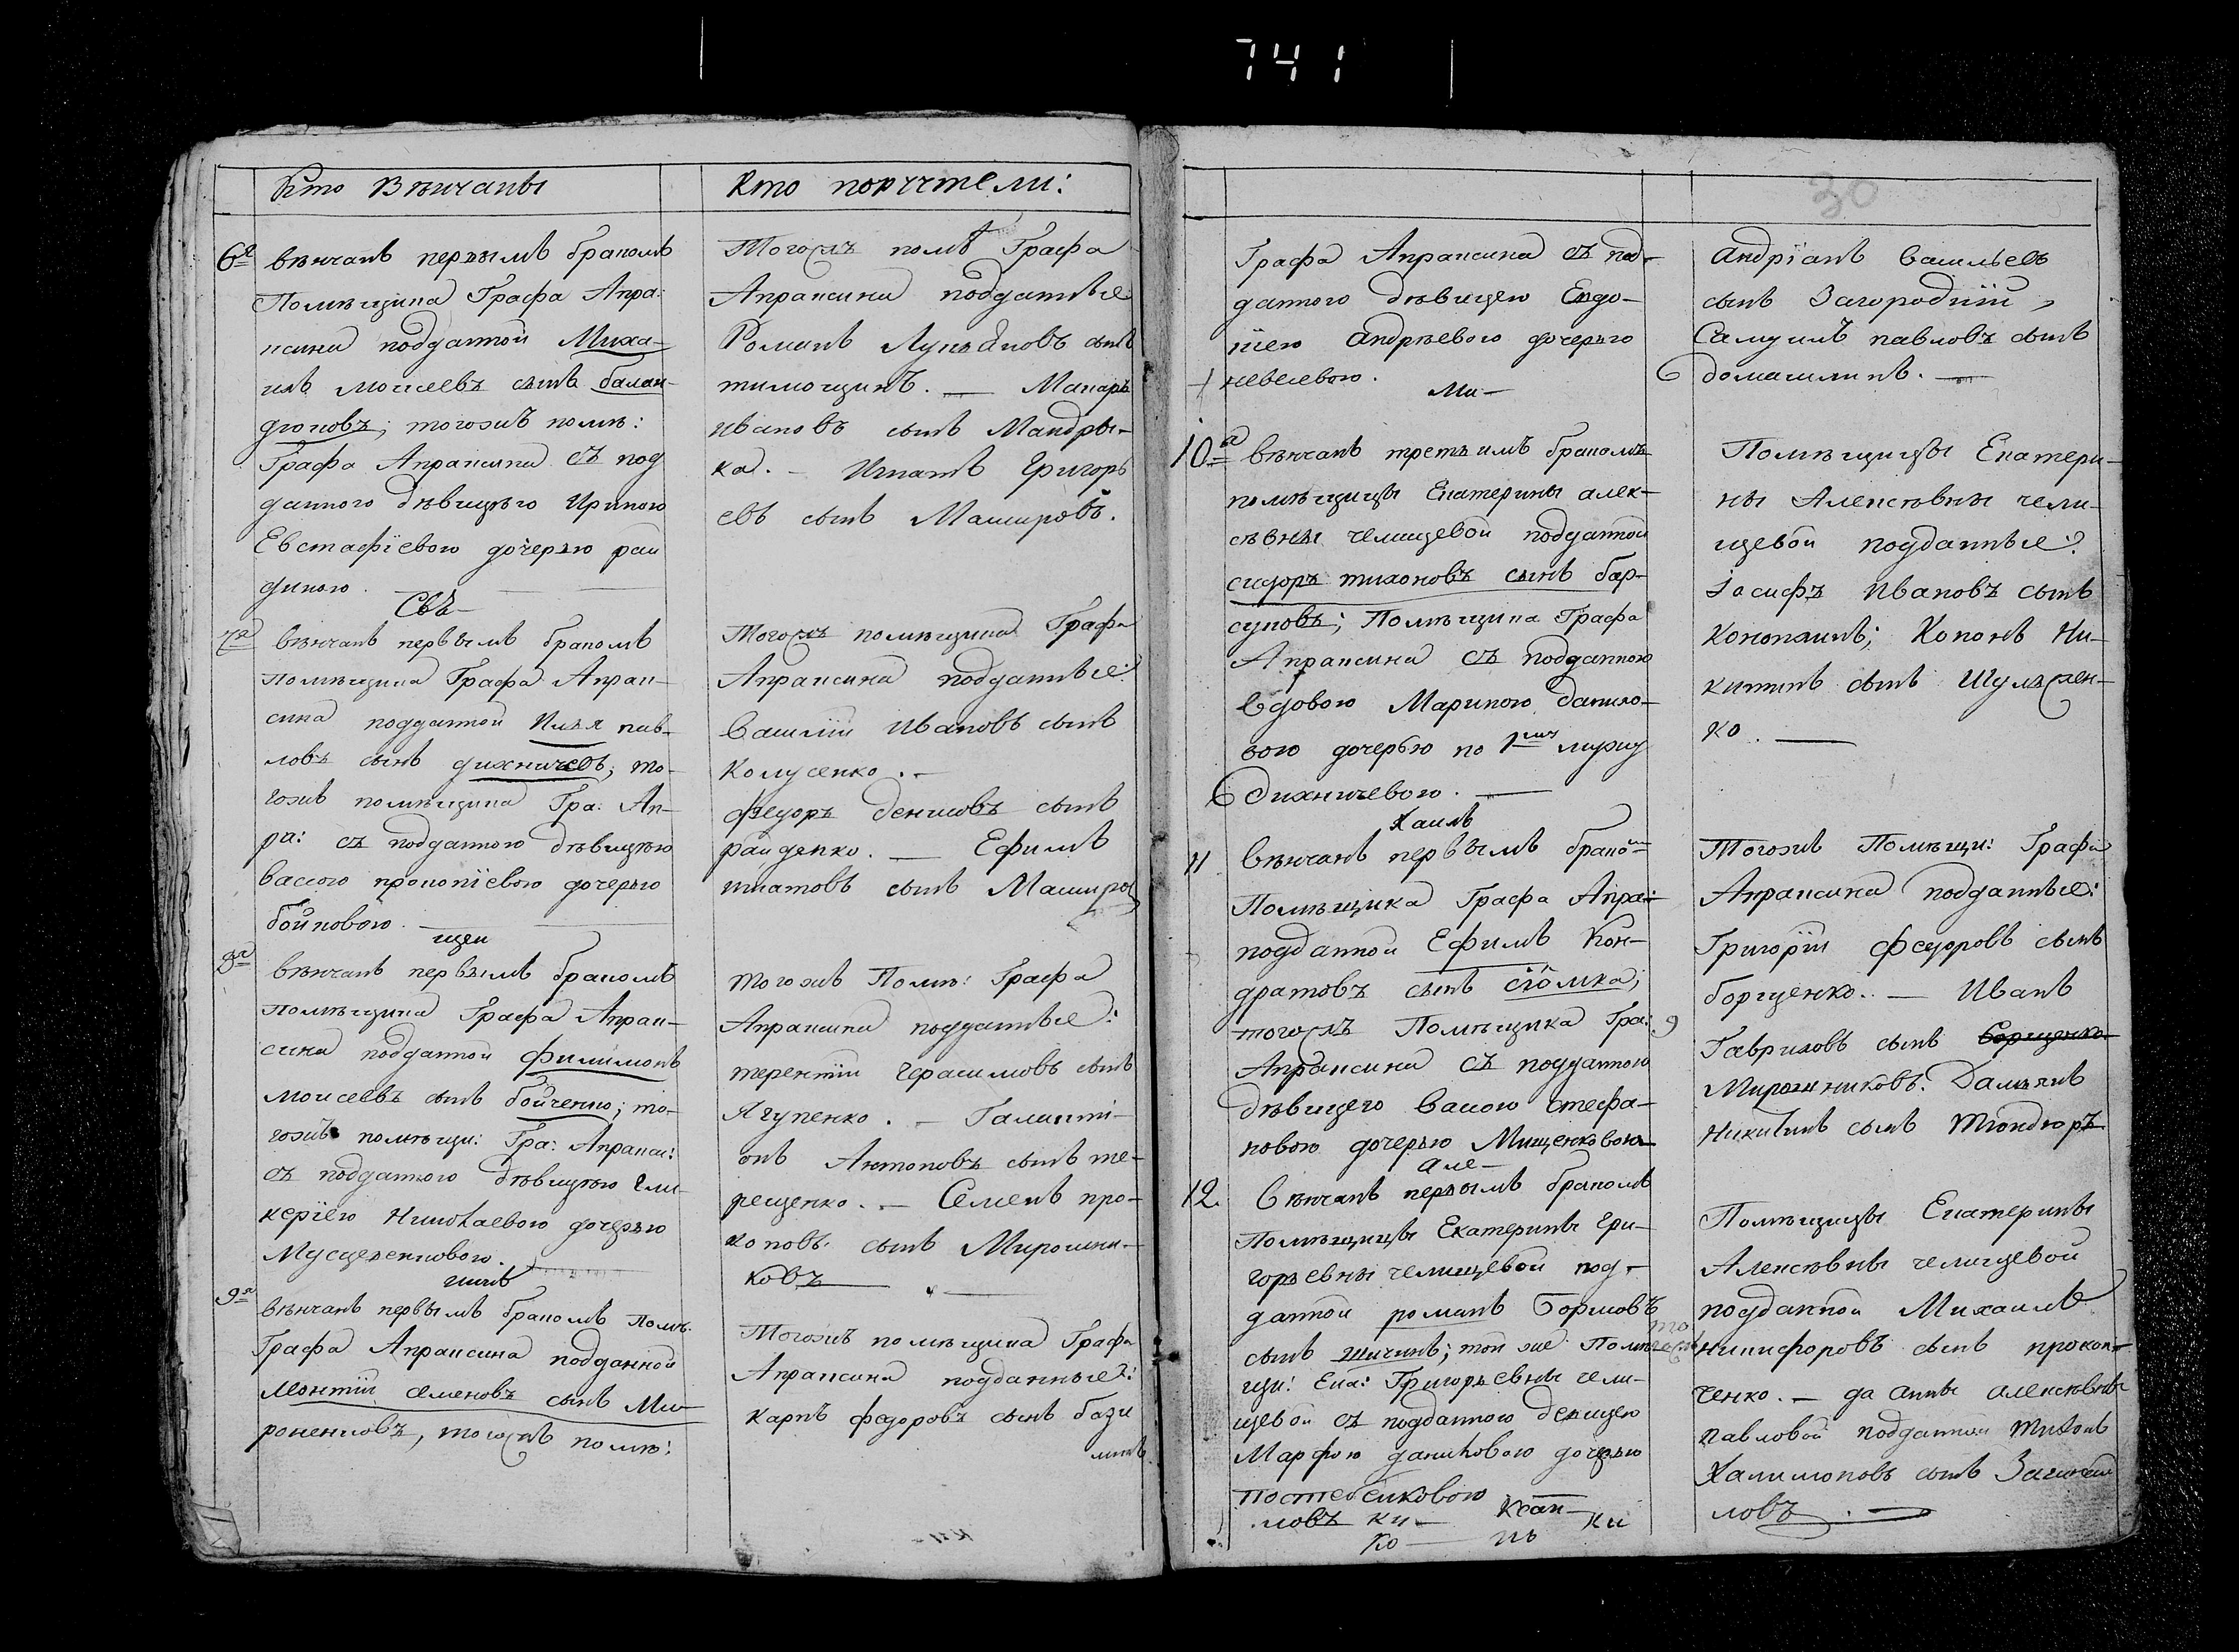 741
Кто вѣнчаны
Кто порутчтели:
30
6е вѣнчанъ первымъ бракомъ
Помѣщика Графа Апра:
ксина подданной Миха-
илъ Моисеевъ сынъ балан-
дюковъ; тогожъ помѣ:
Графа Апраксина съ под
данного дѣвицѣю Ириною
Евстафіевою дочерью рай
диною.
Свѣ-
7а вѣнчанъ первымъ бракомъ
помѣщика Графа Апрак-
сина подданной Илья пав-
ловъ сынъ дихничевъ; то-
гожъ помѣщика Гра: Ап-
ра: съ подданною дѣвицѣю
васою прокопіевою дочерью
бойковою.
щен
8а вѣнчанъ первымъ бракомъ
помѣщика Графа Апрак-
сина подданной филимонъ
моисеевъ сынъ бойченко; то-
гожъ помѣщи: Гра: Апракси:
съ подданною дѣвицѣю Гли-
керіею Николаевою дочерью
9я вѣнчанъ первымъ бракомъ помѣ:
Графа Апраксина подданной
леонтій семеновъ сынъ Ми-
роненковъ, тогожъ помѣ:
Тогожъ помѣ: Графа
Апраксина подданные
Романъ Лукьяновъ сынъ
тимощинъ. — Макаръ
ивановъ сынъ Мандры-
ка. — Игнатъ Григорь
евъ сынъ Машировъ.
Тогожъ помѣщика Графа
Апраксина подданные:
Василій Ивановъ сынъ
Колусенко. —
федоръ денисовъ сынъ
райденко. — Ефимъ
игнатовъ сынъ Маширо
тогожъ Помѣ: Графа
Апраксина подданные:
терентій Герасимовъ сынъ
Ягупенко. — Галакті-
онъ Антоновъ сынъ те-
рещенко. — Семенъ про-
коповъ сынъ Мирошни-
ковъ
Тогожъ помѣщика Графа
Апраксина подданные:
карпъ федоровъ сынъ бази
Графа Апраксина съ под-
данного дѣвицею Евдо-
кіею андрѣевою дочерью
невелевою.
Ми-
10а вѣнчанъ третьимъ бракомъ
помѣщицы Екатерины алек-
сѣвны челищевой подданной
сидоръ тихоновъ сынъ бар-
суковъ; Помѣщика Графа
Апраксина съ подданною
вдовою Мариною данило-
вою дочерью по 1му мужу
Дихничевою.
хаилъ
11 Вѣнчанъ первымъ брако
Помѣщика Графа Апра:
подданной Ефимъ Кон-
дратовъ сынъ сіомка;
тогожъ Помѣщика Гра:
Апраксина съ подданною
дѣвицею васою стефа-
новою дочерью Мищенковою
але-
12. Вѣнчанъ первымъ бракомъ
Помѣщицы Екатерины Гри-
горьевны челищевой под-
данной романъ
сынъ шичинъ; той же Помѣ
щи: Ека: Григорьевны чели-
щевой съ подданною девицею
Марфою даниловою дочерью
ловъ ки-
ко
андріанъ васильевъ
сынъ Загородній,
Самуилъ павловъ сынъ
домашлинъ. —
Помѣщицы Екатери-
ны Алексѣвны чели-
щевой подданные:
Іосифъ Ивановъ сынъ
Кононъ Ни-
китинъ сынъ Шульжен-
ко. —
Тогожъ Помѣщи: Графа
Апраксина подданные:
Григорій федоровъ сынъ
борщенко. — Иванъ
Гавриловъ сынъ борщенко
Мирошниковъ. Дамьянъ
Никитинъ сынъ Тюндюръ
Помѣщицы Екатерины
Алексѣвны челищевой
подданной Михаилъ
никифоровъ сынъ прокоп-
ченко. — да анны алексѣвны
павловой подданной Тихонъ
ловъ. —